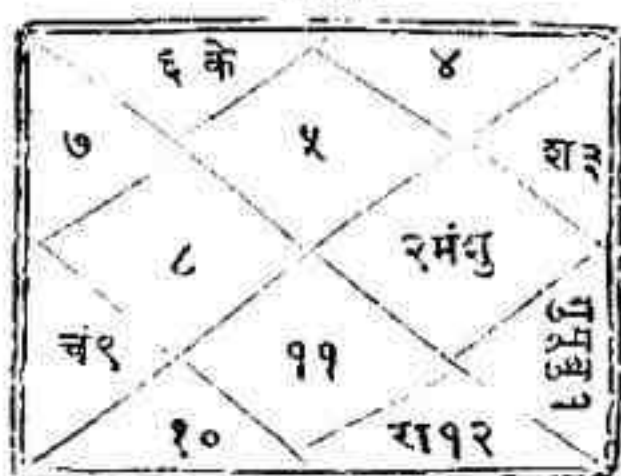 ६ के
४
७
५
श ३
८
२मंशु
चं९
११
१०
रा१२